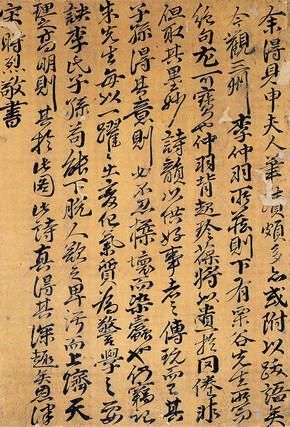 余得見申夫人筆蹟頗多而或附以跋語矣
今觀三州李仲羽所藏則下有栗谷先生所寫
絶句尤可寶也仲羽將以遺於非
但取其妙詩韻以供好事者之傳玩而已其
子孫得其意則必不忍壞而染蠹也仍竊記
朱先生每以一躍躍出變化氣質爲警學之要
訣李氏子孫苟能下脫人欲之卑污而上濟天
理之高明則其於此圖此詩真得其深趣矣恩津
宋時烈敬書